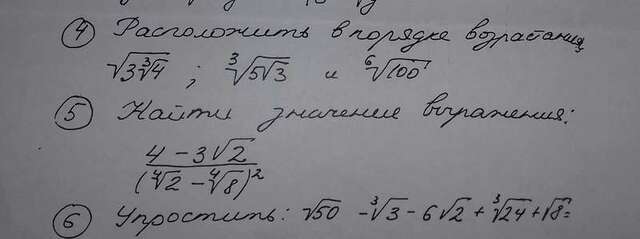 ④ Расположить в порядке возрастания
√(3∛4) ; ∛(5√3) и ⁶√100
⑤ Найти значение выражения:
(4 - 3√2) / (⁴√2 - ⁴√8)²
⑥ Упростить: √50 - ∛3 - 6√2 + ∛24 + √8 =